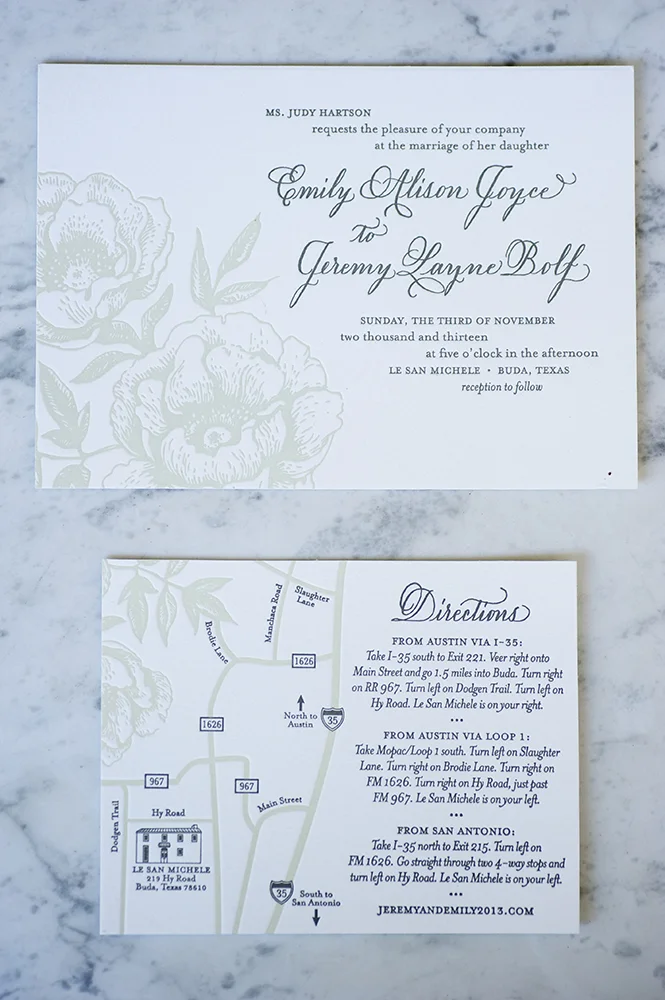 MS. JUDY HARTSON
requests the pleasure of your company
at the marriage of her daughter
Emily Alison Joyce
to
Jeremy Layne Bolf
SUNDAY, THE THIRD OF NOVEMBER
two thousand and thirteen
at five o'clock in the afternoon
LE SAN MICHELE • BUDA, TEXAS
reception to follow
Manchaca Road
Slaughter
Lane
Brodie Lane
1626
North to
Austin
35
1626
967
967
Main Street
Dodgen Trail
Hy Road
LE SAN MICHELE
219 Hy Road
Buda, Texas 78610
35
South to
San Antonio
Directions
FROM AUSTIN VIA I-35:
Take I-35 south to Exit 221. Veer right onto
Main Street and go 1.5 miles into Buda. Turn right
on RR 967. Turn left on Dodgen Trail. Turn left on
Hy Road. Le San Michele is on your right.
•••
FROM AUSTIN VIA LOOP 1:
Take Mopac/Loop 1 south. Turn left on Slaughter
Lane. Turn right on Brodie Lane. Turn right on
FM 1626. Turn right on Hy Road, just past
FM 967. Le San Michele is on your left.
•••
FROM SAN ANTONIO:
Take I-35 north to Exit 215. Turn left on
FM 1626. Go straight through two 4-way stops and
turn left on Hy Road. Le San Michele is on your left.
•••
JEREMYANDEMILY2013.COM